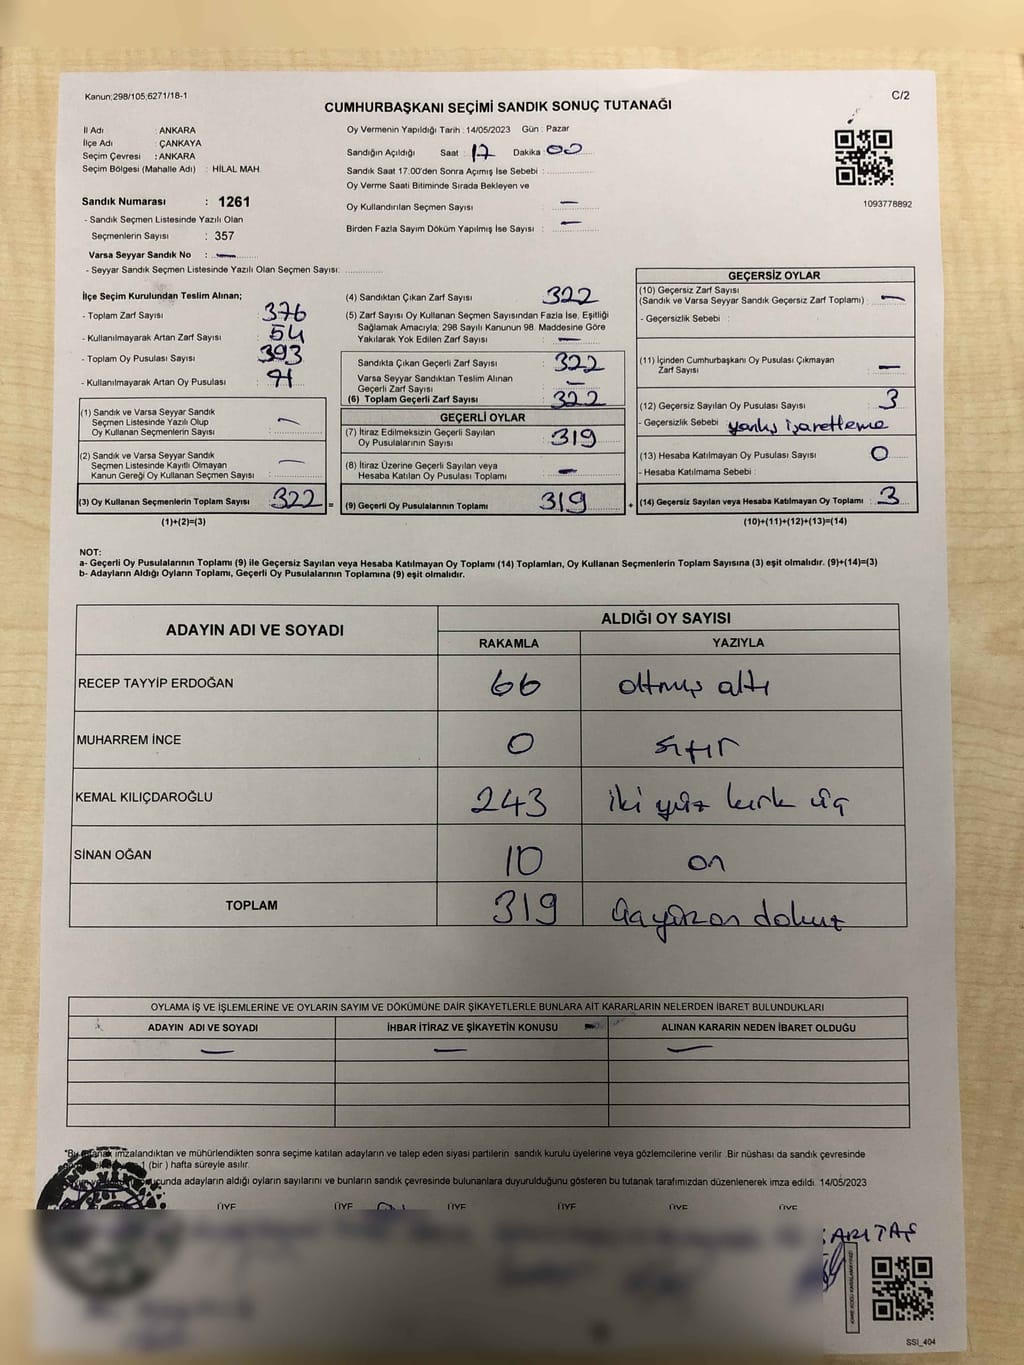 Kanun;298/105;6271/18-1
C/2
CUMHURBAŞKANI SEÇİMİ SANDIK SONUÇ TUTANAĞI
İl Adı : ANKARA
İlçe Adı : ÇANKAYA
Seçim Çevresi : ANKARA
Seçim Bölgesi (Mahalle Adı) : HİLAL MAH.
Oy Vermenin Yapıldığı Tarih : 14/05/2023 Gün : Pazar
Sandığın Açıldığı Saat : 17 Dakika : 00
Sandık Saat 17.00'den Sonra Açımış İse Sebebi :
Oy Verme Saati Bitiminde Sırada Bekleyen ve
Oy Kullandırılan Seçmen Sayısı —
Birden Fazla Sayım Döküm Yapılmış İse Sayısı : —
1093778892
Sandık Numarası : 1261
- Sandık Seçmen Listesinde Yazılı Olan
Seçmenlerin Sayısı : 357
Varsa Seyyar Sandık No : —
- Seyyar Sandık Seçmen Listesinde Yazılı Olan Seçmen Sayısı:
İlçe Seçim Kurulundan Teslim Alınan;
- Toplam Zarf Sayısı : 376
- Kullanılmayarak Artan Zarf Sayısı : 54
- Toplam Oy Pusulası Sayısı : 393
- Kullanılmayarak Artan Oy Pusulası : 71
(1) Sandık ve Varsa Seyyar Sandık
Seçmen Listesinde Yazılı Olup
Oy Kullanan Seçmenlerin Sayısı : —
(2) Sandık ve Varsa Seyyar Sandık
Seçmen Listesinde Kayıtlı Olmayan
Kanun Gereği Oy Kullanan Seçmen Sayısı : —
(3) Oy Kullanan Seçmenlerin Toplam Sayısı : 322 =
(1)+(2)=(3)
(4) Sandıktan Çıkan Zarf Sayısı : 322
(5) Zarf Sayısı Oy Kullanan Seçmen Sayısından Fazla İse, Eşitliği
Sağlamak Amacıyla; 298 Sayılı Kanunun 98. Maddesine Göre
Yakılarak Yok Edilen Zarf Sayısı : —
Sandıkta Çıkan Geçerli Zarf Sayısı : 322
Varsa Seyyar Sandıktan Teslim Alınan
Geçerli Zarf Sayısı : —
(6) Toplam Geçerli Zarf Sayısı : 322
GEÇERLİ OYLAR
(7) İtiraz Edilmeksizin Geçerli Sayılan
Oy Pusulalarının Sayısı : 319
(8) İtiraz Üzerine Geçerli Sayılan veya
Hesaba Katılan Oy Pusulası Toplamı : —
(9) Geçerli Oy Pusulalarının Toplamı : 319 +
GEÇERSİZ OYLAR
(10) Geçersiz Zarf Sayısı
(Sandık ve Varsa Seyyar Sandık Geçersiz Zarf Toplamı) : —
- Geçersizlik Sebebi :
(11) İçinden Cumhurbaşkanı Oy Pusulası Çıkmayan
Zarf Sayısı : —
(12) Geçersiz Sayılan Oy Pusulası Sayısı : 3
- Geçersizlik Sebebi yanlış işaretleme
(13) Hesaba Katılmayan Oy Pusulası Sayısı : 0
- Hesaba Katılmama Sebebi :
(14) Geçersiz Sayılan veya Hesaba Katılmayan Oy Toplamı : 3
(10)+(11)+(12)+(13)=(14)
NOT:
a- Geçerli Oy Pusulalarının Toplamı (9) ile Geçersiz Sayılan veya Hesaba Katılmayan Oy Toplamı (14) Toplamları, Oy Kullanan Seçmenlerin Toplam Sayısına (3) eşit olmalıdır. (9)+(14)=(3)
b- Adayların Aldığı Oyların Toplamı, Geçerli Oy Pusulalarının Toplamına (9) eşit olmalıdır.
ADAYIN ADI VE SOYADI ALDIĞI OY SAYISI
RAKAMLA YAZIYLA
RECEP TAYYİP ERDOĞAN 66 altmış altı
MUHARREM İNCE 0 sıfır
KEMAL KILIÇDAROĞLU 243 iki yüz kırk üç
SİNAN OĞAN 10 on
TOPLAM 319 üçyüzon dokuz
OYLAMA İŞ VE İŞLEMLERİNE VE OYLARIN SAYIM VE DÖKÜMÜNE DAİR ŞİKAYETLERLE BUNLARA AİT KARARLARIN NELERDEN İBARET BULUNDUKLARI
ADAYIN ADI VE SOYADI İHBAR İTİRAZ VE ŞİKAYETİN KONUSU ALINAN KARARIN NEDEN İBARET OLDUĞU
— — —
imzalandıktan ve mühürlendikten sonra seçime katılan adayların ve talep eden siyasi partilerin sandık kurulu üyelerine veya gözlemcilerine verilir .Bir nüshası da sandık çevresinde
1 (bir ) hafta süreyle asılır.
adayların aldığı oyların sayılarını ve bunların sandık çevresinde bulunanlara duyurulduğunu gösteren bu tutanak tarafımızdan düzenlenerek imza edildi. 14/05/2023
ÜYE ÜYE ÜYE ÜYE ÜYE ÜYE
SSI_404